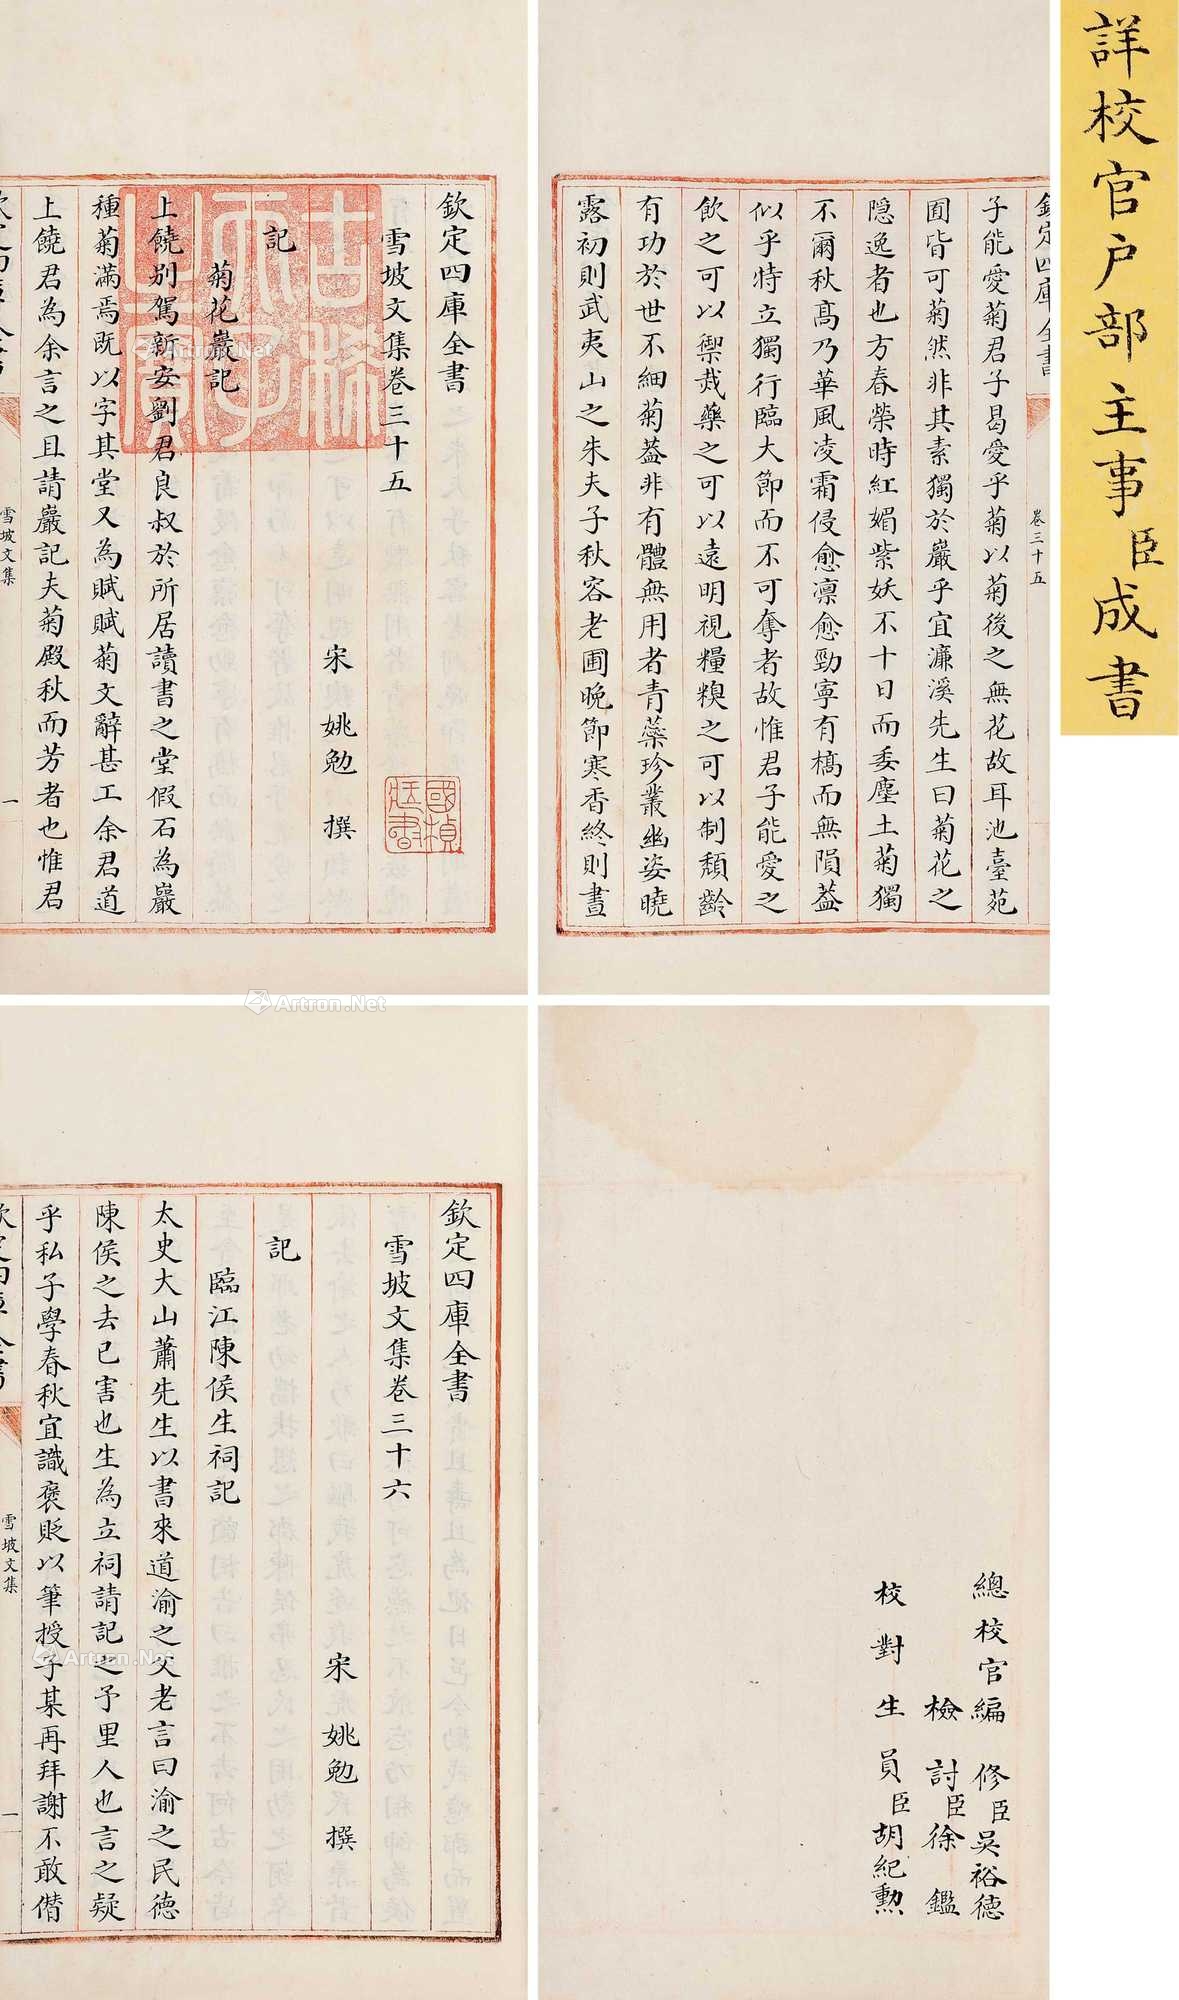 詳校官户部主事臣成書
欽定四庫全書
雪坡文集卷三十五
宋 姚勉 撰
記
菊花巖記
上饒别駕新安劉君良叔於所居讀書之堂假石為巖
種菊滿焉既以字其堂又為賦賦菊文辭甚工余君道
上饒君為余言之且請巖記夫菊殿秋而芳者也惟君
雪坡文集
一
古稀天子之寶
欽定四庫全書
卷三十五
子能愛菊君子曷愛乎菊以菊後之無花故耳池臺苑
囿皆可菊然非其素獨於巖乎宜濂溪先生曰菊花之
隱逸者也方春榮時紅媚紫妖不十日而委塵土菊獨
不爾秋髙乃華風凌霜侵愈凛愈勁寧有槁而無隕葢
似乎特立獨行臨大節而不可奪者故惟君子能愛之
飲之可以禦烖藥之可以遠明視糧糗之可以制頽齡
有功於世不細菊葢非有體無用者青蘂珍叢幽姿曉
露初則武夷山之朱夫子秋容老圃晚節寒香終則晝
欽定四庫全書
雪坡文集卷三十六
宋 姚勉 撰
記
臨江陳侯生祠記
太史大山蕭先生以書來道渝之父老言曰渝之民德
陳侯之去已害也生為立祠請記之予里人也言之疑
乎私子學春秋宜識褒貶以筆授子某再拜謝不敢僣
雪坡文集
一
總校官編修臣吳裕德
檢討臣徐鑑
校對生員臣胡紀勲
Artron.Net
Artron.Net